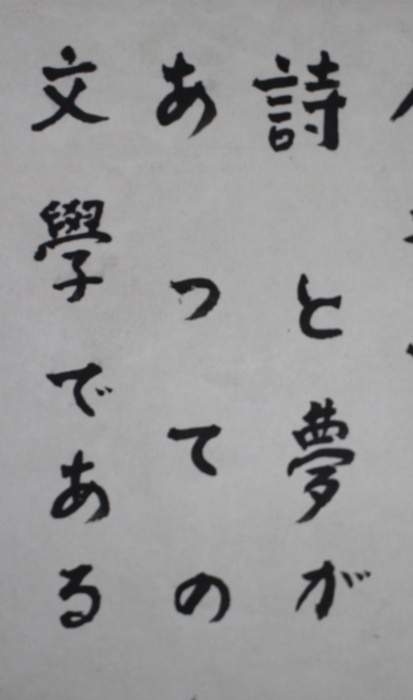 詩と夢が
あっての
文學である